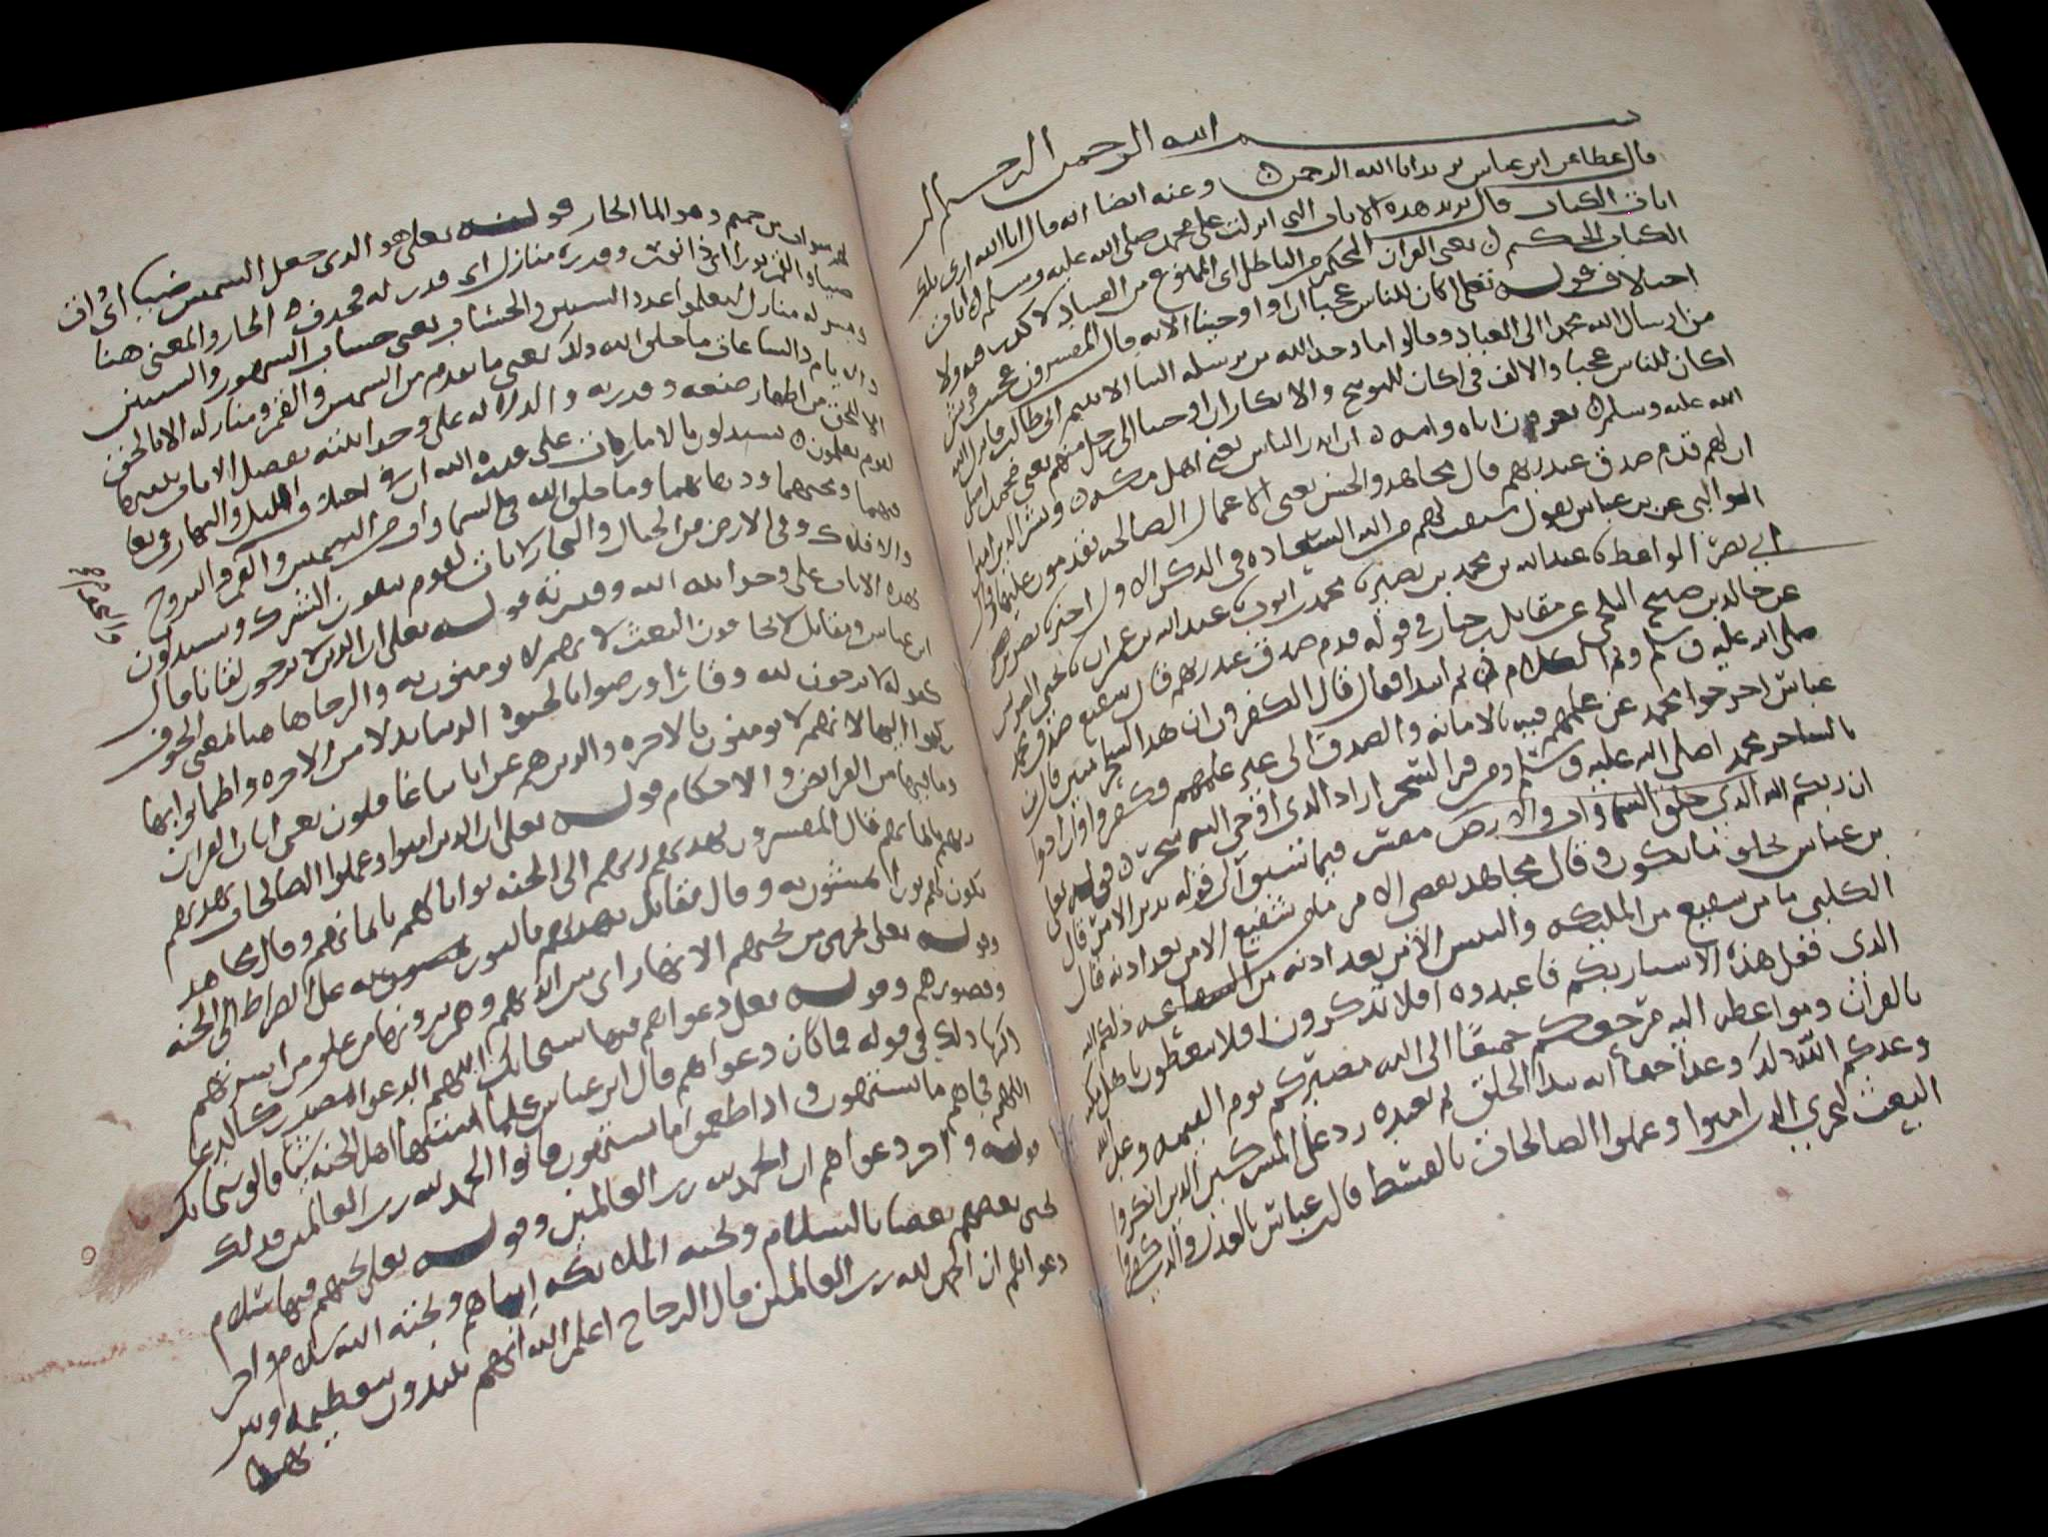 بسم الله الرحمن الرحيم الر
قال عطا عن ابن عباس يريد انا الله الرحمن وعنه ايضا انه قال انا الله ارى تلك
ايات الكتاب قال يريد هذه الايات التى انزلت على محمد صلى الله عليه وسلم ايات
الكتاب الحكيم يعنى القران المحكم من الباطل اى الممنوع من الفساد لا كذب فيه ولا
اختلاف قوله تعلى اكان للناس عجبا ان اوحينا الايه قال المفسرون عجبت قريش
من ارسال الله محمدا الى العباد وقالوا اما وجد الله من يرسله الينا الا يتيم ابى طالب فانزل الله
اكان للناس عجبا والالف فى اكان للتوبيخ والانكار ان اوحينا الى رجل منهم يعنى محمد صلى
الله عليه وسلم يعرفون اباه وامه ان انذر الناس يعنى اهل مكه وبشر الذين امنوا
ان لهم قدم صدق عند ربهم قال مجاهد والحسن يعنى الاعمال الصالحه يقدمون عليها وقال
الوالبى عن بن عباس يقول سبقت لهم من الله السعاده فى الذكر الاول اخبرنا
ابى نصر الواعظ عبدالله بن محمد بن نصير محمد بن ايوب عبد الله بن عمران
عن خالد بن صبيح البلخى عن مقاتل بن حيان فى قوله قدم صدق عند ربهم قال شفيع صدق محمد
صلى الله عليه وسلم وتم الكلام ثم ابتدا فقال قال الكفرون ان هذا لسحر مبين قال بن
عباس اخرجوا محمد عن علمهم فيه بالامانه والصدق الى غير علمهم وكفروا وارادوا
بالساحر محمدا صلى الله عليه وسلم ومن قرا لسحر اراد الذى اوحى اليه سحر قوله تعلى
ان ربكم الله الذى خلق السموات والارض مفسر فيما سبق الى قوله يدبر الامر قال
بن عباس بخلق ما يكون وقال مجاهد يقضى الامر ما من شفيع الا من بعد اذنه قال
الكلبى ما من شفيع من الملايكه والنبيين الا من بعد اذنه من الشفاعه ذلكم الله
الذى فعل هذه الاشيا ربكم فاعبدوه افلا تذكرون افلا تتعظون يا اهل مكه
بالقران ومواعظه اليه مرجعكم جميعا الى الله مصيركم يوم القيمه وعد الله
وعدكم الله ذلك وعدا حقا انه يبدا الخلق ثم يعيده رد على المشركين الذين انكروا
البعث ليجزى الذين امنوا وعملوا الصالحات بالقسط قال بن عباس بالعدل والذين كفروا
لهم شراب من حميم وهو الما الحار قوله تعلى هو الذى جعل الشمس ضيا اى ذات
ضيا والقمر نورا اى ذا نور وقدره منازل اى قدر له فحذف الجار والمعنى هنا
ويسر له منازل لتعلموا عدد السنين والحساب يعنى حساب الشهور والسنين
والايام والساعات ما خلق الله ذلك يعنى ما تقدم من الشمس والقمر ومنازله الا بالحق
الا للحق من اظهار صنعه وقدرته والدلاله على وحدانيته يفصل الايات يبينها
لقوم يعلمون يستدلون بالامارات على قدره الله ان فى اختلاف الليل والنهار
والنجوم
والافلاك وفى الارض من الجبال والبحار لايات لقوم يتقون الشرك ويستدلون
بهذه الايات على وحدانيه الله وقدرته قوله تعلى ان الذين لا يرجون لقانا قال
ابن عباس ومقاتل لا يخافون البعث لانهم لا يومنون به والرجا هاهنا بمعنى الخوف
كقوله لا ترجون لله وقارا ورضوا بالحيوه الدنيا بدلا من الاخره واطمانوا بها
ركنوا اليها لانهم لا يومنون بالاخره والذين هم عن اياتنا غافلون يعنى ايات القران
وما فيها من الفرايض والاحكام قوله تعلى ان الذين امنوا وعملوا الصالحات يهديهم
ربهم بايمانهم قال المفسرون يهديهم ربهم الى الجنه ثوابا لهم بايمانهم وقال مجاهد
يكون لهم نورا يمشون به وقال مقاتل يهديهم بالنور على الصراط الى الجنه
وقوله تعلى تجرى من تحتهم الانهار اى بين ايديهم وهم يرونها من علو من اسرتهم
وقصورهم وقوله تعلى دعواهم فيها سبحانك اللهم الدعوى المصدر كالدعا
ذكرنا ذلك فى قوله فما كان دعواهم قال ابن عباس كلما اشتهى اهل الجنه شيا قالوا سبحانك
اللهم فجاهم ما يشتهون واذا طعموا مما يشتهون قالوا الحمد لله رب العالمين فذلك
قوله واخر دعواهم ان الحمد لله رب العالمين وقوله تعلى تحيتهم فيها سلام
يحيى بعضهم بعضا بالسلام وتحيه الملايكه اياهم وتحيه الله سلام واخر
دعواهم ان الحمد لله رب العالمين قال الزجاج اعلم الله انهم يبتدون بتعظيم الله